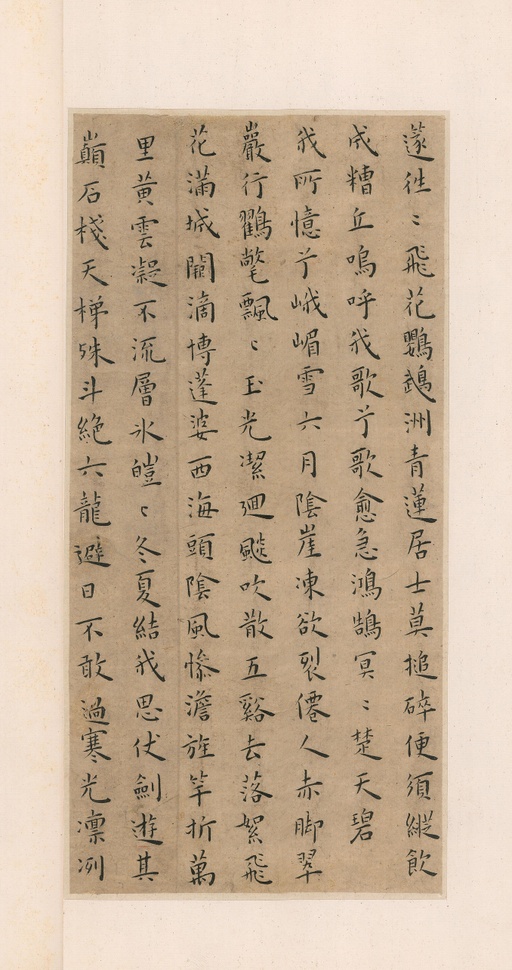 蓬往〻飛花鸚鵡洲青蓮居士莫搥碎便須縱飲
成糟丘嗚呼我歌兮歌愈急鴻鵠冥〻楚天碧
我所憶兮峨嵋雪六月陰崖凍欲裂僊人赤脚翠
巖行鸛氅飄〻玉光潔迴飈吹散五谿去落絮飛
花滿城闉滴博蓬婆西海頭陰風慘澹旌竿折萬
里黄雲凝不流層氷皚〻冬夏結我思伏劍遊其
巔石棧天梯殊斗絶六龍避日不敢過寒光凛冽